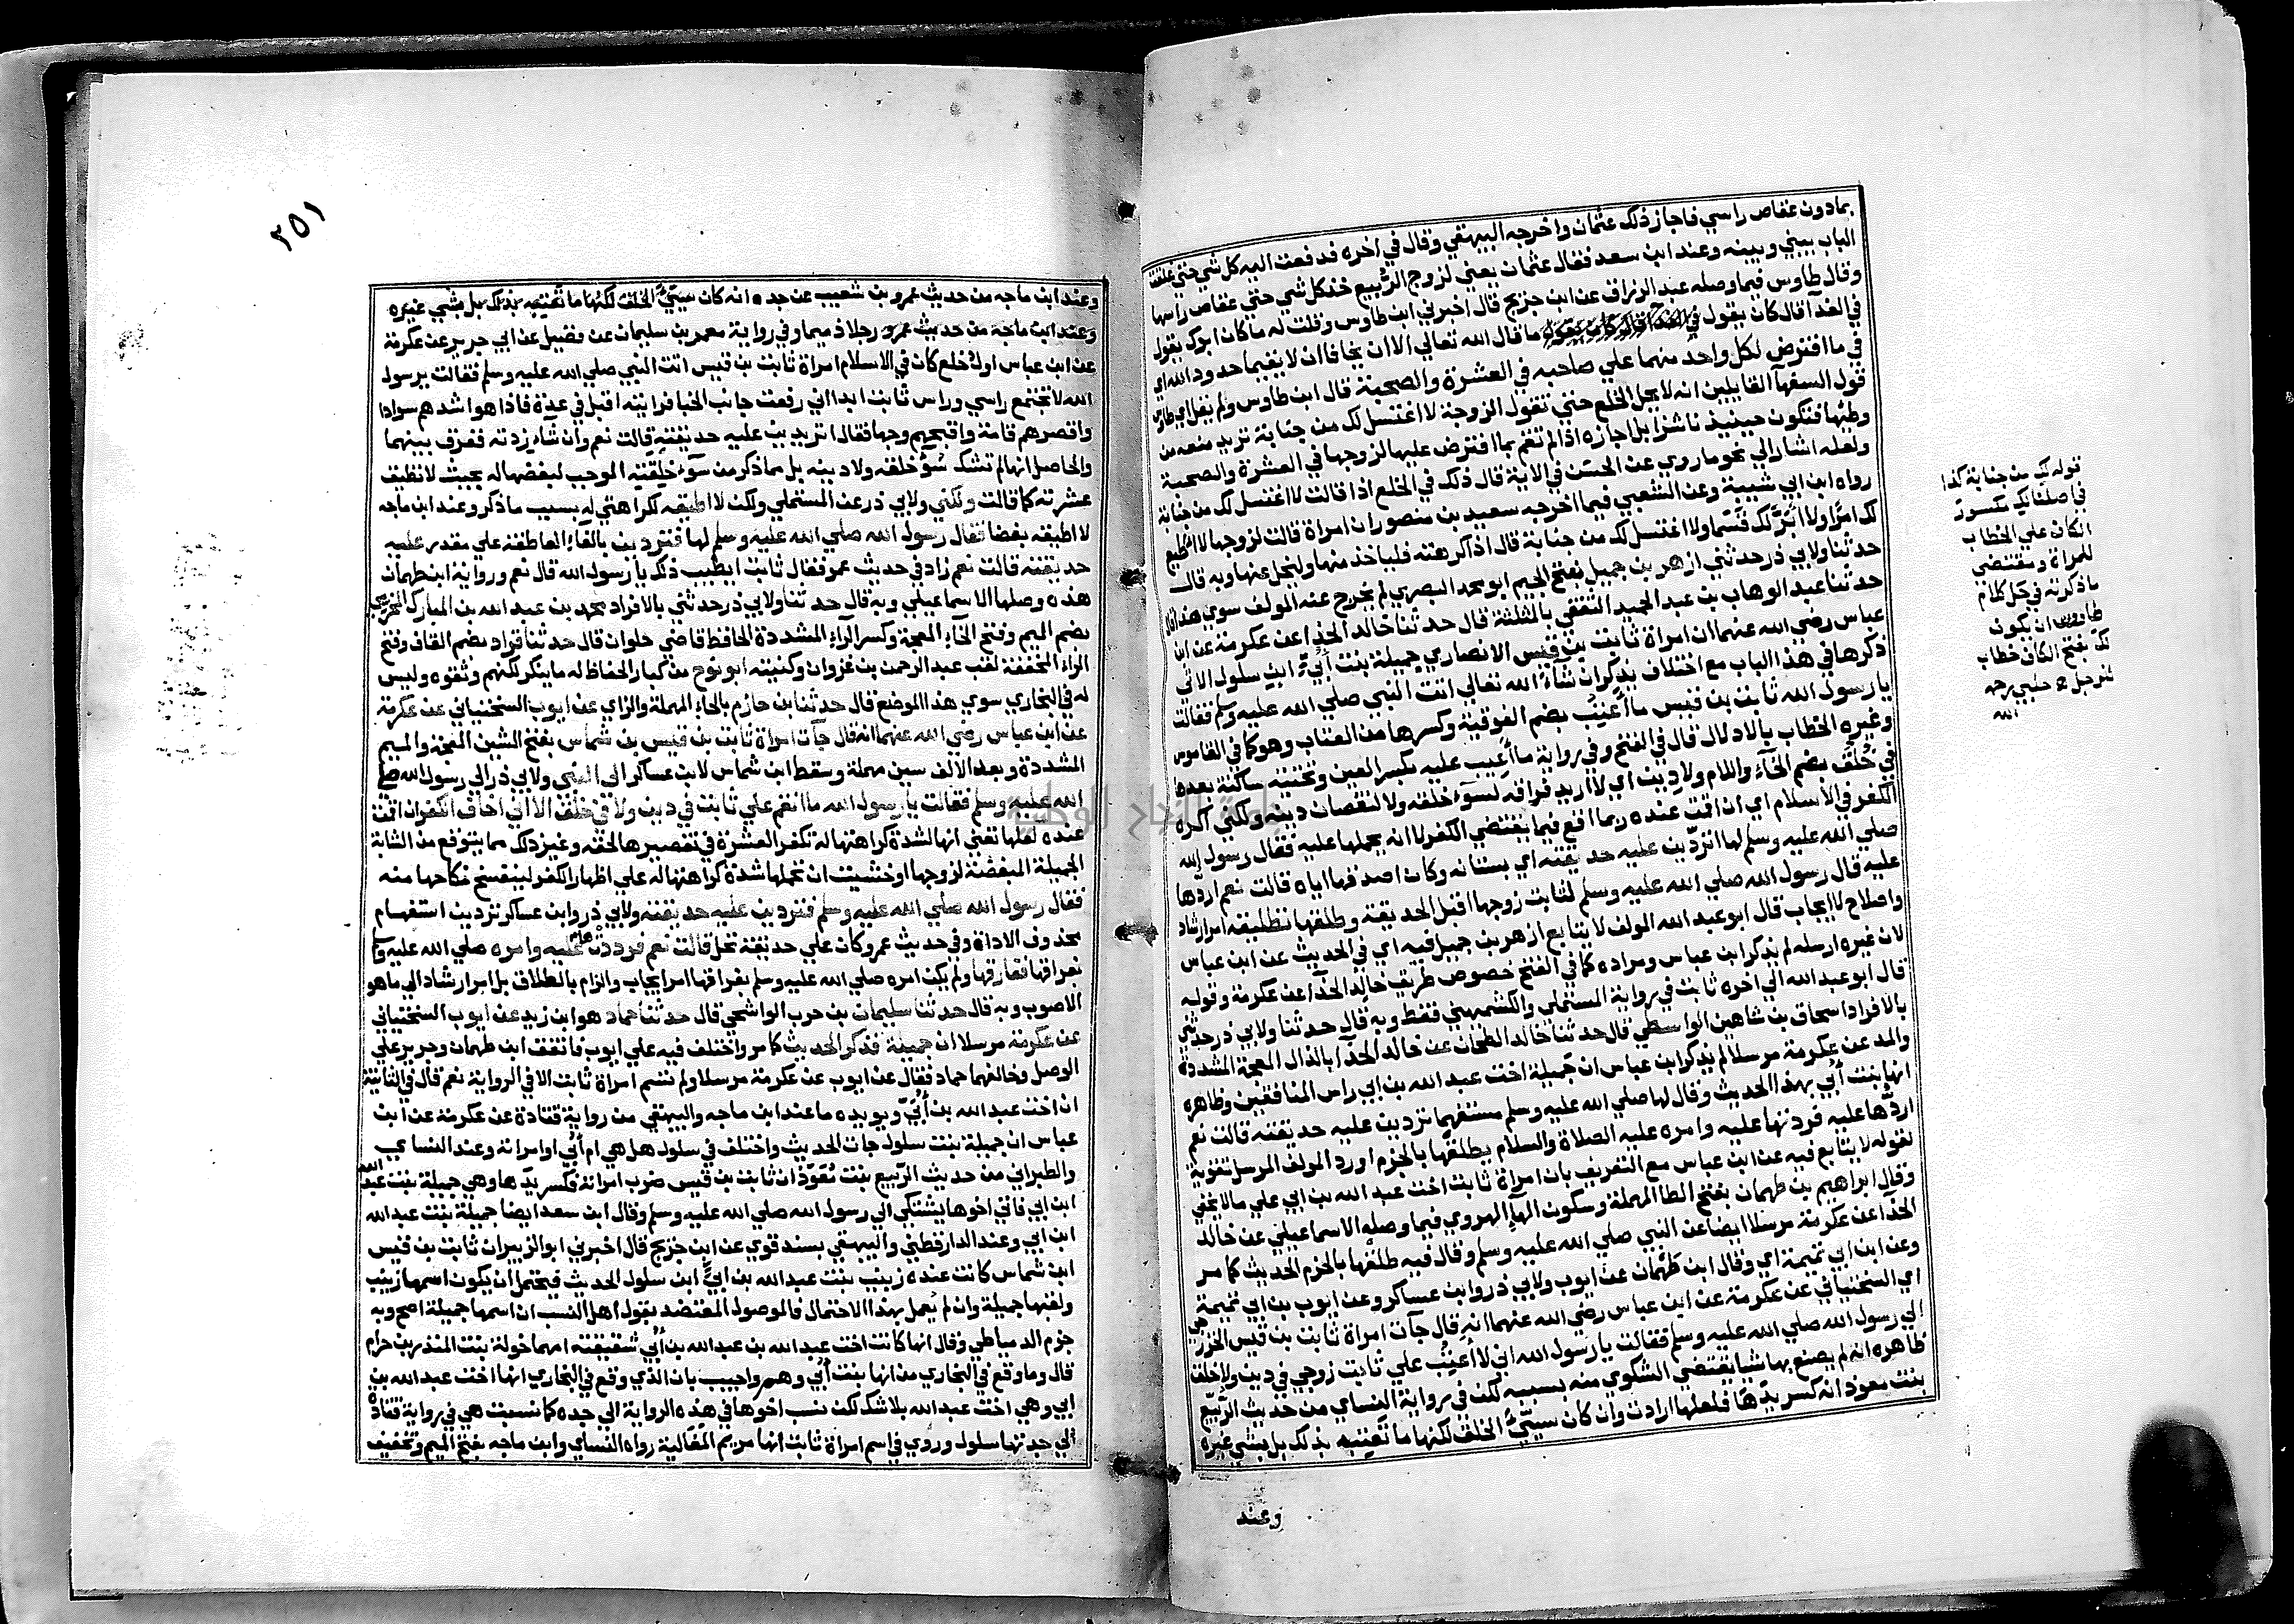 بمادون عقاص راسي فاجاز ذلك عثمان واخرجه البيهقي وقال في اخره فدفعت اليه كل شي حتي غلقت
الباب بيني وبينه وعند ابن سعد فقال عثمان يعني لزوج الربيع خذ كل شي حتي عقاص راسها
وقال طاوس فيما وصله عبد الرزاق عن ابن جريج قال اخبرني ابن طاوس وقلت له ما كان ابوك يقول
في الفدآ قال كان يقول ما قال الله تعالي الا ان يخافا ان لا يقيما حدود الله اي
في ما افترض لكل واحد منهما علي صاحبه في العشرة والصحبة قال ابن طاوس ولم يقل اي طاوس
قول السفهآ القايلين انه لا يحل الخلع حتي تقول الزوجة لا اغتسل لك من جنابة تريد منعه من
وطيها فتكون حينيذ ناشزا بل اجازه اذا لم تقم بما افترض عليها لزوجها في العشرة والصحبة
ولعله اشار الي نحو ما روي عن الحسن في الاية قال ذلك في الخلع اذا قالت لا اغتسل لك من جنابة
رواه ابن ابي شيبة وعن الشعبي فيما اخرجه سعيد بن منصور ان امراة قالت لزوجها لا اطيع
لك امرا ولا ابر لك قسما ولا اغتسل لك من جنابة قال اذا كرهته فلياخذ منها وليخل عنها وبه قال
حدثنا ولابي ذر حدثني ازهر بن جميل بفتح الجيم ابو محمد البصري لم يخرج عنه المولف سوي هذا قال
حدثنا عبد الوهاب بن عبد المجيد الثقفي بالمثلثة قال حدثنا خالد الحذا عن عكرمة عن ابن
عباس رضي الله عنهما ان امراة ثابت بن قيس الانصاري جميلة بنت أبي ابن سلول الاتي
ذكرها في هذا الباب مع اختلاف يذكر ان شآء الله تعالي اتت النبي صلي الله عليه وسلم فقالت
يا رسول الله ثابت بن قيس ما أعتب بضم الفوقية وكسرها من العتاب وهو كما في القاموس
وغيره الخطاب بالادلال قال في الفتح وفي رواية ما أعيب عليه بكسر العين وتحتية ساكنة بعده
في خلق بضم الخآء واللام ولا دين اي لا اريد فراقه لسوء خلقه ولا لنقصان دينه ولكني اكره
الكفر في الاسلام اي ان اقمت عنده ربما اقع فيما يقتضي الكفر لا انه يحملها عليه فقال رسول الله
صلي الله عليه وسلم لها اتردين عليه حديقته اي بستانه وكان اصدقها اياه قالت نعم اردها
عليه قال رسول الله صلي الله عليه وسلم لثابت زوجها اقبل الحديقة وطلقها تطليقة امر ارشاد
واصلاح لا ايجاب قال ابو عبد الله المولف لا يتابع ازهر بن جميل فيه اي في الحديث عن ابن عباس
لان غيره ارسله لم يذكر ابن عباس ومراده كما في الفتح خصوص طريق خالد الحذآ عن عكرمة وقوله
قال ابو عبد الله الي اخره ثابت في رواية المستملي والكشميهني فقط وبه قال حدثنا ولابي ذر حدثني
بالافراد اسحاق بن شاهين الواسطي قال حدثنا خالد الطحان عن خالد الحذآ بالذال المعجمة المشددة
والمد عن عكرمة مرسلا لم يذكر ابن عباس ان جميلة اخت عبد الله بن ابي راس المنافقين وظاهره
انها بنت أبي بهذا الحديث وقال لها صلي الله عليه وسلم مستفهما تردين عليه حديقته قالت نعم
اردها عليه فردتها عليه وامره عليه الصلاة والسلام يطلقها بالجزم اورد المولف المرسل تقوية
لقوله لا يتابع فيه عن ابن عباس مع التعريف بان امراة ثابت اخت عبد الله بن ابي علي ما لا يخفي
وقال ابراهيم بن طهمان بفتح الطا المهملة وسكون الهآ الهروي فيما وصله الاسماعيلي عن خالد
الحذآ عن عكرمة مرسلا ايضا عن النبي صلي الله عليه وسلم وقال فيه طلقها بالجزم الحديث كما مر
وعن ابن ابي تميمة اي وقال ابن طهمان عن ايوب ولابي ذر وابن عساكر وعن ايوب بن ابي تميمة
اي السختياني عن عكرمة عن ابن عباس رضي الله عنهما انه قال جآت امراة ثابت بن قيس الخزرجي
الي رسول الله صلي الله عليه وسلم فقالت يا رسول الله اني لا أعتب علي ثابت زوجي في دين ولا خلق
ظاهره انه لم يصنع بها شيا يقتضي الشكوي منه بسببه لكن في رواية النساي من حديث الربيع
بنت معوذ انه كسر يدها فلعلها ارادت وان كان سيئ الخلق لكنها ما تعتبه بذلك بل بشي غيره
وعند
قوله لك من جنابة كذا
في اصلنا لك مكسورة
الكاف علي الخطاب
للمراة ومقتضي
ما ذكرته في حل كلام
طاووس ان يكون
لك بفتح الكاف خطاب
للرجل
الله
٢٥١
وعند ابن ماجه من حديث عمرو بن شعيب عن جده انه كان سيئ الخلق لكنها ما تعتبه بذلك بل بشي غيره
وعند ابن ماجة من حديث عمرو رجلا ذميما وفي رواية معمر بن سليمان عن فضيل عن ابي جرير عن عكرمة
عن ابن عباس اول خلع كان في الاسلام امراة ثابت بن قيس اتت النبي صلي الله عليه وسلم فقالت يرسول
الله لا تجتمع راسي وراس ثابت ابدا اني رفعت جانب الخبا فرايته اقبل في عدة فاذا هو اشدهم سوادا
واقصرهم قامة واقبحهم وجها فقال اتردين عليه حديقته قالت نعم وان شآء زدته ففرق بينهما
والحاصل انها لم تشك سوء خلقه ولا دينه بل مما ذكر من سوء خليقته الموجب لبغضها له بحيث لا تطيق
عشرته كما قالت ولكني ولابي ذر عن المستملي ولكن لا اطيقه لكراهتي له بسبب ما ذكر وعند ابن ماجه
لا اطيقه بغضا فقال رسول الله صلي الله عليه وسلم لها فتردين بالفآء العاطفة علي مقدر عليه
حديقته قالت نعم زاد في حديث عمر فقال ثابت ايطيب ذلك يا رسول الله قال نعم ورواية ابن طهمان
هذه وصلها الاسماعيلي وبه قال حدثنا ولابي ذر حدثني بالافراد محمد بن عبد الله بن المبارك المخرمي
بضم الميم وفتح الخآء المعجمة وكسر الرآء المشددة الحافظ قاضي حلوان قال حدثنا قراد بضم القاف وفتح
الراء المخففة لقب عبد الرحمن بن غزوان وكنيته ابو نوح من كبار الحفاظ له ما ينكر لكنهم وثقوه وليس
له في البخاري سوي هذا الموضع قال حدثنا بن حازم بالحآء المهملة والزاي عن ايوب السختياني عن عكرمة
عن ابن عباس رضي الله عنهما انه قال جآت امراة ثابت بن قيس بن شماس بفتح الشين المعجمة والميم
المشددة وبعد الالف سين مهملة وسقط ابن شماس لابن عساكر الي النبي ولابي ذر الي رسول الله صلي
الله عليه وسلم فقالت يا رسول الله ما انقم علي ثابت في دين ولا في خلق الا اني اخاف الكفر ان اقمت
عنده لعلها تعني انها لشدة كراهتها له تكفر العشرة في تقصيرها لحقه وغير ذلك مما يتوقع من الشابة
الجميلة المبغضة لزوجها او خشيت ان تحملها شدة كراهتها له علي اظهار الكفر لينفسخ نكاحها منه
فقال رسول الله صلي الله عليه وسلم فتردين عليه حديقته ولابي ذر وابن عساكر تردين استفهام
محذوف الاداة وفي حديث عمر وكان علي حديقة نخل قالت نعم فردت عليه وامره صلي الله عليه وسلم
بفراقها ففارقها ولم يكن امره صلي الله عليه وسلم بفراقها امر ايجاب والزام بالطلاق بل امر ارشاد الي ما هو
الاصوب وبه قال حدثنا سليمان بن حرب الواشحي قال حدثنا حماد هو ابن زيد عن ايوب السختياني
عن عكرمة مرسلا ان جميلة فذكر الحديث كما مر واختلف فيه علي ايوب فاتفق ابن طهمان وجرير علي
الوصل وخالفهما حماد فقال عن ايوب عن عكرمة مرسلا ولم تسم امراة ثابت الا في الرواية نعم قال في الثانية
ان اخت عبد الله بن أبي ويويده ما عند ابن ماجه والبيهقي من رواية قتادة عن عكرمة عن ابن
عباس ان جميلة بنت سلول جات الحديث واختلف في سلول هل هي ام أبي او امراته وعند النساي
والطبراني من حديث الربيع بنت معوذ ان ثابت بن قيس ضرب امراته فكسر يدها وهي جميلة بنت عبد الله
ابن ابي فاتي اخوها يشتكي الي رسول الله صلي الله عليه وسلم وقال ابن سعد ايضا جميلة بنت عبد الله
ابن ابي وعند الدارقطني والبيهقي بسند قوي عن ابن جريج قال اخبرني ابو الزبير ان ثابت بن قيس
ابن شماس كانت عنده زينب بنت عبد الله بن ابي ابن سلول الحديث فيحتمل ان يكون اسمها زينب
ولقبها جميلة وان لم يعمل بهذا الاحتمال فالموصول المعتضد بقول اهل النسب ان اسمها جميلة اصح وبه
جزم الدمياطي وقال انها كانت اخت عبد الله بن عبد الله بن أبي شقيقته امهما خولة بنت المنذر بن حرام
قال وما وقع في البخاري من انها بنت أبي وهم واجيب بان الذي وقع في البخاري انها اخت عبد الله بن
ابي وهي اخت عبد الله بلا شك لكن نسب اخوها في هذه الرواية الي جده كما نسبت هي في رواية قتادة
الي جدتها سلول وروي في اسم امراة ثابت انها مريم المغالية رواه النساي وابن ماجه بفتح الميم وتخفيف
جامعة النجاح الوطنية